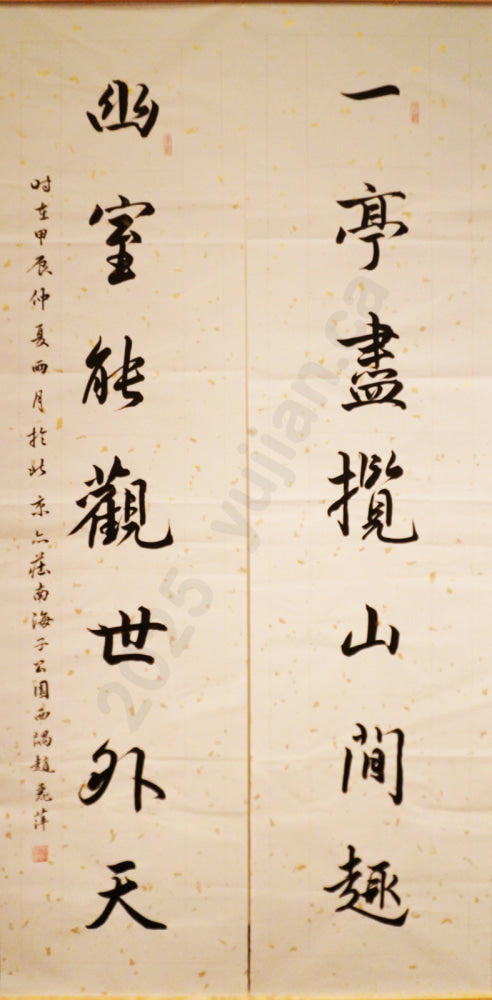 一亭盡攬山間趣
幽室能觀世外天
时在甲辰仲夏雨月於北京亦莊南海子公園西隅趙亮萍
2025 yujian.ca